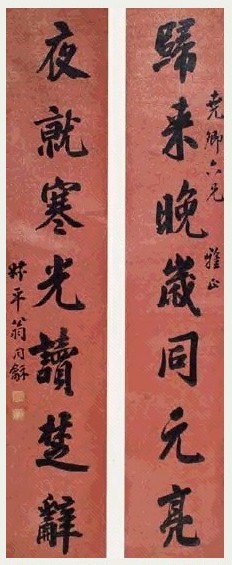 歸来晚歲同元亮
尭卿六兄雅正
夜就寒光讀楚辭
叔平翁同龢